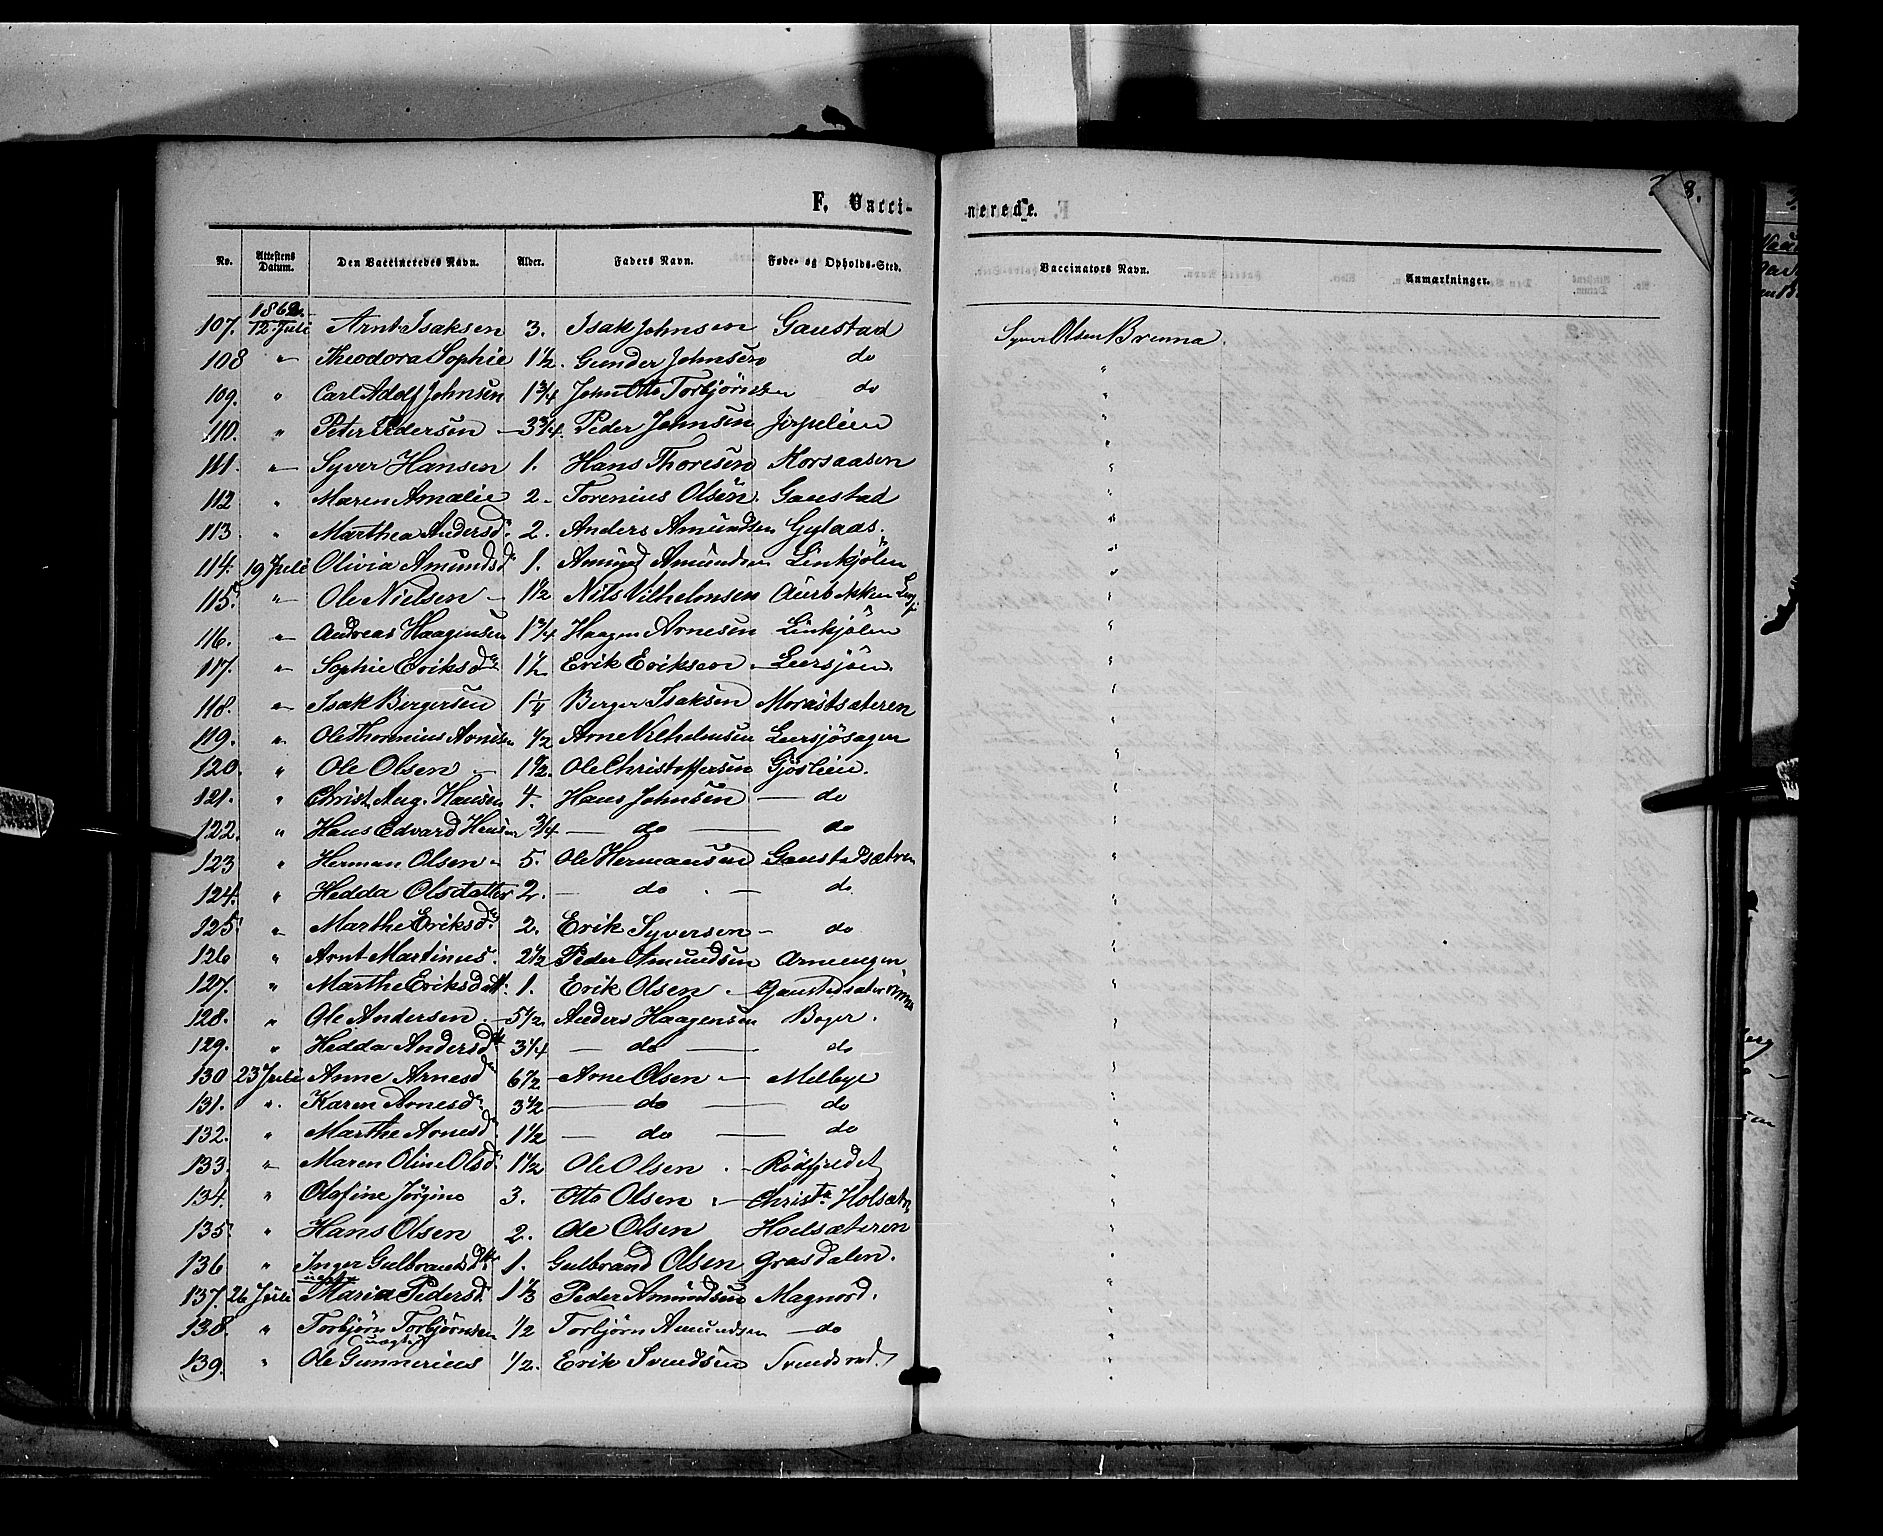 F. Vacci-
No. Attestens Datum. Den Vaccineredes Navn. Alder. Faders Navn. Føde- og Opholds-Sted.
1862.
107. 12. Juli Arnt Isaksen 3. Isak Johnsen Gaustad
108 " Theodora Sophie 1 1/2. Gunder Johnsen do
109. " Carl Adolf Johnsen 1 3/4 John Otto Torbjörnsen do
110. " Peter Pedersen - 3 3/4. Peder Johnsen
111. " Syver Hansen 1. Hans Thoresen Korsaasen
112 " Maren Amalie 2. Torenius Olsen. Gaustad
113. " Marthea Andersd. 2. Anders Amundsen Gylaas.
114. 19 Juli Olivia Amundsd 1. Amund Amundsen Linkjölen
115. " Ole Nielsen - 1 1/2 Nils Vilhelmsen Aurbekken
116. " Andreas Haagensen 1 3/4 Haagen Arnesen Linkjölen
117. " Sophie Eriksd. 1 1/2 Erik Eriksen - Leersjöen
118. " Isak Bergersen 1 1/4 Berger Isaksen Morastsæteren
119. " Ole Thorenius Arnesen 1/2 Arne Vilhelmsen Leersjösagen
120. " Ole Olsen - 1 1/2. Ole Christoffersen Gjöslien.
121. " Christ. Aug. Hansen 4. Hans Johnsen - do
122. " Hans Edvard Hansen 3/4. - do - do
123 " Herman Olsen - 5. Ole Hermansen Gaustadsætren
124. " Hedda Olsdatter 2. - do - do
125. " Marthe Eriksd. 2. Erik Syversen - do
126 " Arnt Martinus. 2 1/2 Peder Amundsen Arneengen
127. " Marthe Eriksdatt. 1. Erik Olsen - Gaustadsæter
128. " Ole Andersen - 5 1/2. Anders Haagensen Boger.
129. " Hedda Andersd 3 1/4 - do - do
130 23 Juli Anne Arnesd 6 1/2 - Arne Olsen - Melbye
131. " Karen Arnesd. 3 1/2 - do - do
132. " Marthe Arnesd. 1 1/2 - do - do
133. " Maren Oline Olsd 1 1/2 Ole Olsen. - Rödfjeldet
134. " Olafine Jörgine 3. Otto Olsen - Christ. Holsætr.
135. " Hans Olsen 2. Ole Olsen Holsæteren
136 " Inger Gulbrandsd. 1. Gulbrand Olsen Grasdalen.
137. 26 Juli Maria Pedersd. 1 1/3 Peder Amundsen Magnord.
138. " Torbjörn Torbjörnsen 1/2 Torbjörn Amundsen - do
uægte
139. " Ole Gunnerius 1/2. Erik Svendsen Svendsrud.
nerede.
8.
Vaccinators Navn. Anmærkninger.
Syver Olsen Brenna.